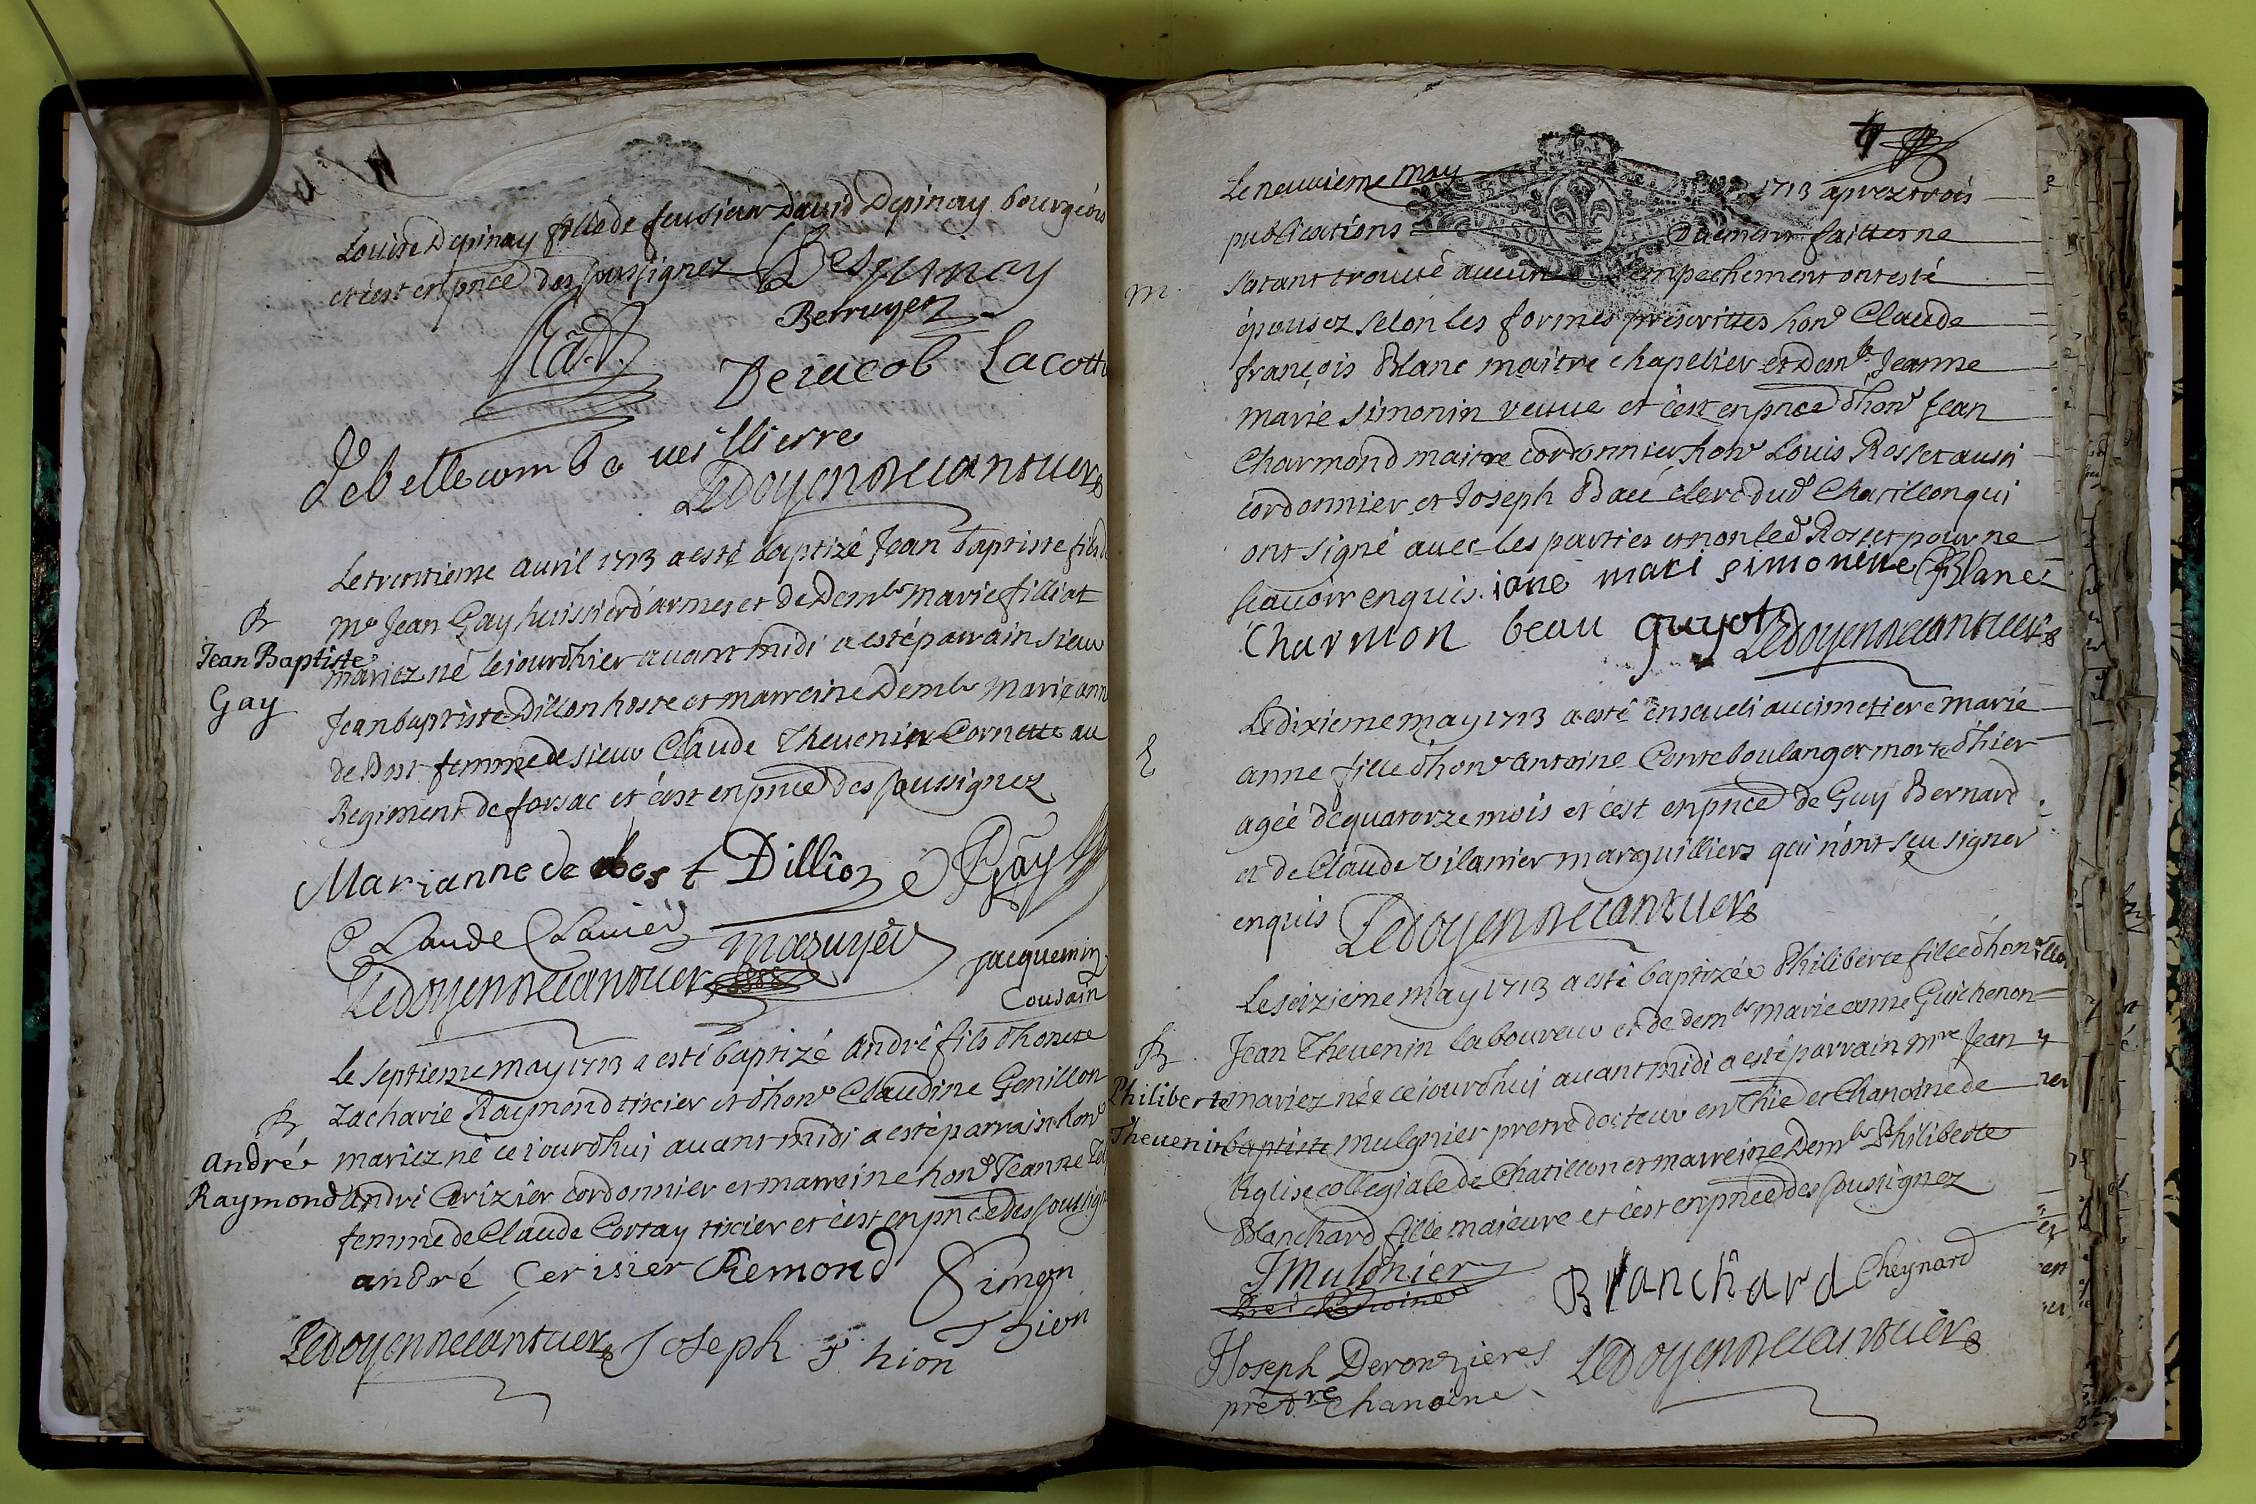 Louise Depinay fille de feu sieur David Depinay bourgeois
et c'est en pnce des soussignez Despinay
Berruyer
De iacob Lacotte
debellecombe veilliere
Ledoyen Decantuer
Le trentieme avril 1713 a esté baptizé Jean baptiste fils de
B
Me Jean Gay huissier d'armes et de Demle Marie filliat
Jean Baptiste
Gay
mariez né le jour d'hier avant midi a esté parrain sieur
Jean baptiste Dillon hoste et marreine Demle Marie anne
de Dost femme de sieur Claude Thevenin Cornette au
Regiment de forsac et c'est en pnce des soussignez
Marianne de dost Dillion Gay
Claude Clavier mazuyer
jacquemin
Cousain
Ledoyen Decantuer
Le septieme may 1713 a esté baptizé André fils d'honeste
Zacharie Raymond tixier et d'hone Claudine Genillon
B
André
Raymond
mariez né ce iourd'hui avant midi a esté parrain hone
André Cerizier cordonnier et marreine hone Jeanne
femme de Claude Cortay tixier et c'est en pnce des soussignez
andré Cerisier Remond Simon
Thion
Ledoyen Decantuer Joseph Thion
Le neuvieme may 1713 aprez trois
publications duement faittes ne
m.
s'etant trouvé aucun empechement ont esté
épousez selon les formes prescrittes hone Claude
françois Blanc maitre chapelier et Demle Jeanne
Marie Simonin veuve et c'est en pnce d'hone Jean
Charmond maitre cordonnier hone Louis Rosset aussi
cordonnier et Joseph Bau clerc dud Chatillon qui
ont signé avec les parties et non led Rosset pour ne
scavoir enquis. iane mari simonin Blanc
Charmon beau guyot Ledoyen Decantuer
Le dixieme may 1713 a esté enseveli au cimetiere marie
E
anne fille d'hone Antoine Conte boulanger morte d'hier
agée de quatorze mois et c'est en pnce de Guy Bernard
et de Claude Vilanier marguilliers qui n'ont seu signer
enquis Ledoyen Decantuer
Le seizieme may 1713 a esté baptizée Philiberte fille d'hone
B
Philiberte
Thevenin
Jean Thevenin laboureur et de demle Marie anne Guichenon
mariez née ce iourd'hui avant midi a esté parrain mre Jean
baptiste mulonier pretre docteur en Thie et Chanoine de
l'Eglise collegiale de Chatillon et marreine Demle Philiberte
Blanchard fille majeure et c'est en pnce des soussignez
J Mulonier Blanchard Cheynard
J Joseph Deronzieres Ledoyen Decantuer
pretre Chanoine